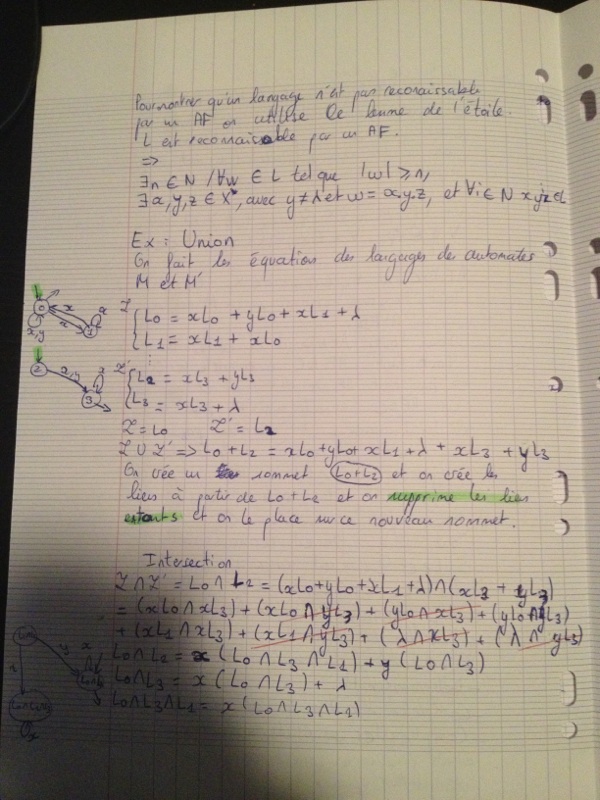 Pour montrer qu'un langage n'est pas reconnaissable
par un AF on utilise le lemme de l'étoile.
L est reconnaissable par un AF.
=>
∃n ∈ N / ∀w ∈ L tel que |w| ≥ n,
∃x, y, z ∈ X*, avec y ≠ λ et w = x.y.z, et ∀i ∈ N x yⁱz ∈ L
Ex : Union
On fait les équations des langages des automates
M et M'
L
{ L0 = xL0 + yL0 + xL1 + λ
{ L1 = xL1 + xL0
0 x x 1 x x,y
L'
{ L2 = xL3 + yL3
{ L3 = xL3 + λ
2 x,y 3 x
L = L0 L' = L2
L ∪ L' => L0 + L2 = xL0 + yL0 + xL1 + λ + xL3 + yL3
On crée un sommet (L0+L2) et on crée les
liens à partir de L0 + L2 et on supprime les liens
entants et on le place sur ce nouveau sommet.
Intersection
L ∩ L' = L0 ∩ L2 = (xL0 + yL0 + xL1 + λ) ∩ (xL3 + yL3)
= (xL0 ∩ xL3) + (xL0 ∩ yL3) + (yL0 ∩ xL3) + (yL0 ∩ yL3)
+ (xL1 ∩ xL3) + (xL1 ∩ yL3) + (λ ∩ xL3) + (λ ∩ yL3)
L0 ∩ L2 = x (L0 ∩ L3 ∩ L1) + y (L0 ∩ L3)
L0 ∩ L3 = x (L0 ∩ L3) + λ
L0 ∩ L3 ∩ L1 = x (L0 ∩ L3 ∩ L1)